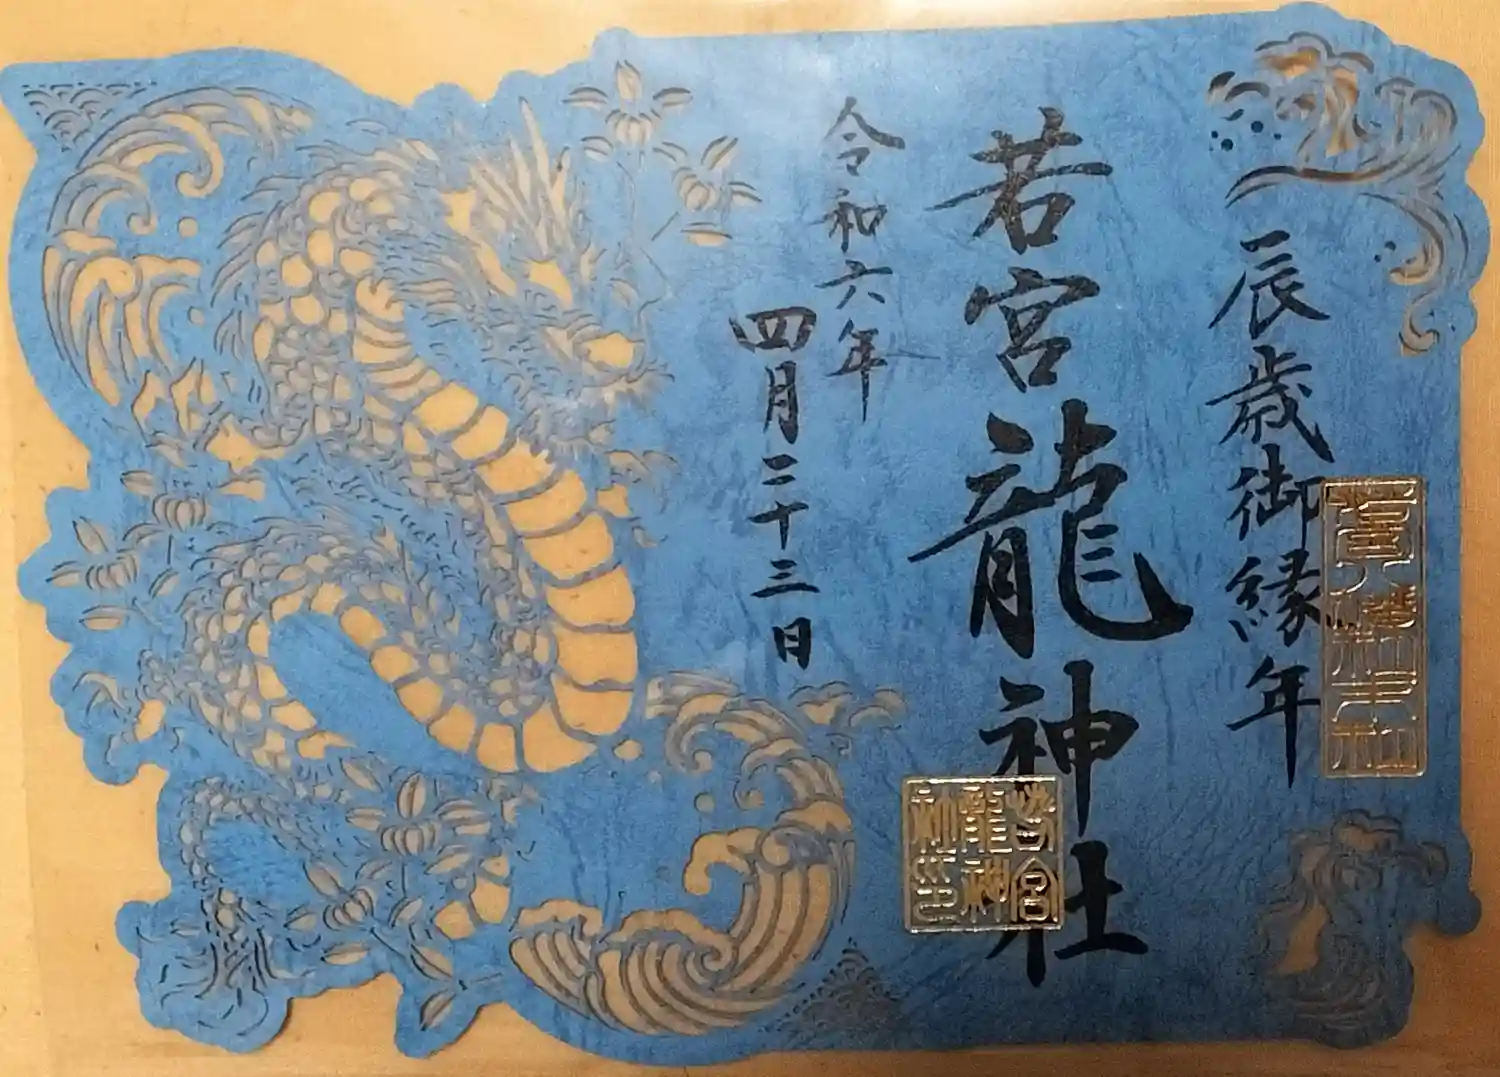 辰歳御縁年
若宮龍神社
令和六年
四月二十三日
若宮
龍神
社之印